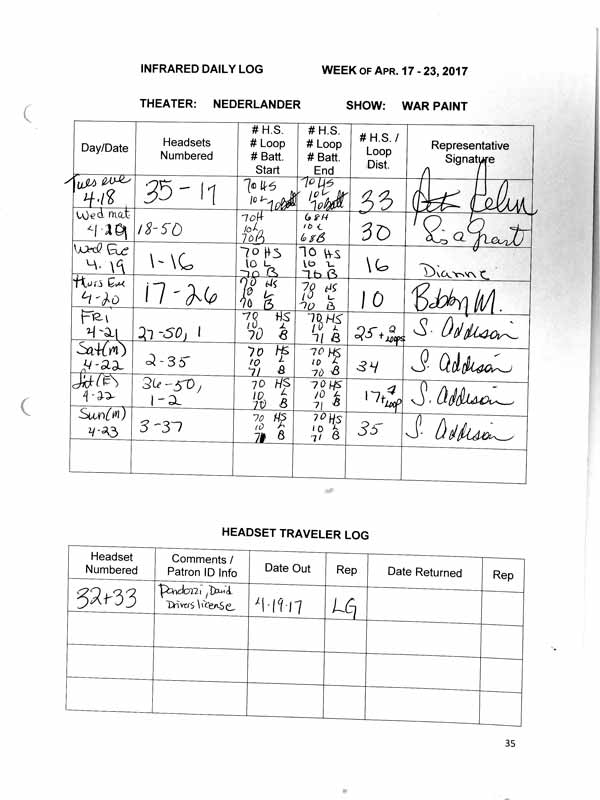 INFRARED DAILY LOG WEEK OF APR. 17 - 23, 2017
THEATER: NEDERLANDER SHOW: WAR PAINT
Day/Date Headsets Numbered # H.S. # Loop # Batt. Start # H.S. # Loop # Batt. End # H.S. / Loop Dist. Representative Signature
Tues eve 4.18 35-17 70 HS 10 L 70 Batt 70 HS 10 L 70 Batt 33
Wed mat 4.19 18-50 70H 10L 70B 68H 10L 68B 30 Lisa Grant
Wed Eve 4.19 1-16 70 HS 10 L 70 B 70 HS 10 L 70 B 16 Dianne
Thurs Eve 4-20 17-26 70 HS 10 L 70 B 70 HS 10 L 70 B 10 Bobby M.
FRI 4-21 27-50, 1 70 HS 10 L 70 B 70 HS 10 L 71 B 25 + 2 Loops S. Addison
Sat(M) 4-22 2-35 70 HS 10 L 71 B 70 HS 10 L 70 B 34 S. Addison
Sat(E) 4-22 36-50, 1-2 70 HS 10 L 70 B 70 HS 10 L 71 B 17 + Loop S. Addison
Sun(M) 4-23 3-37 70 HS 10 L 71 B 70 HS 10 L 71 B 35 S. Addison
HEADSET TRAVELER LOG
Headset Numbered Comments / Patron ID Info Date Out Rep Date Returned Rep
32+33 David Drivers license 4.19.17 LG
35